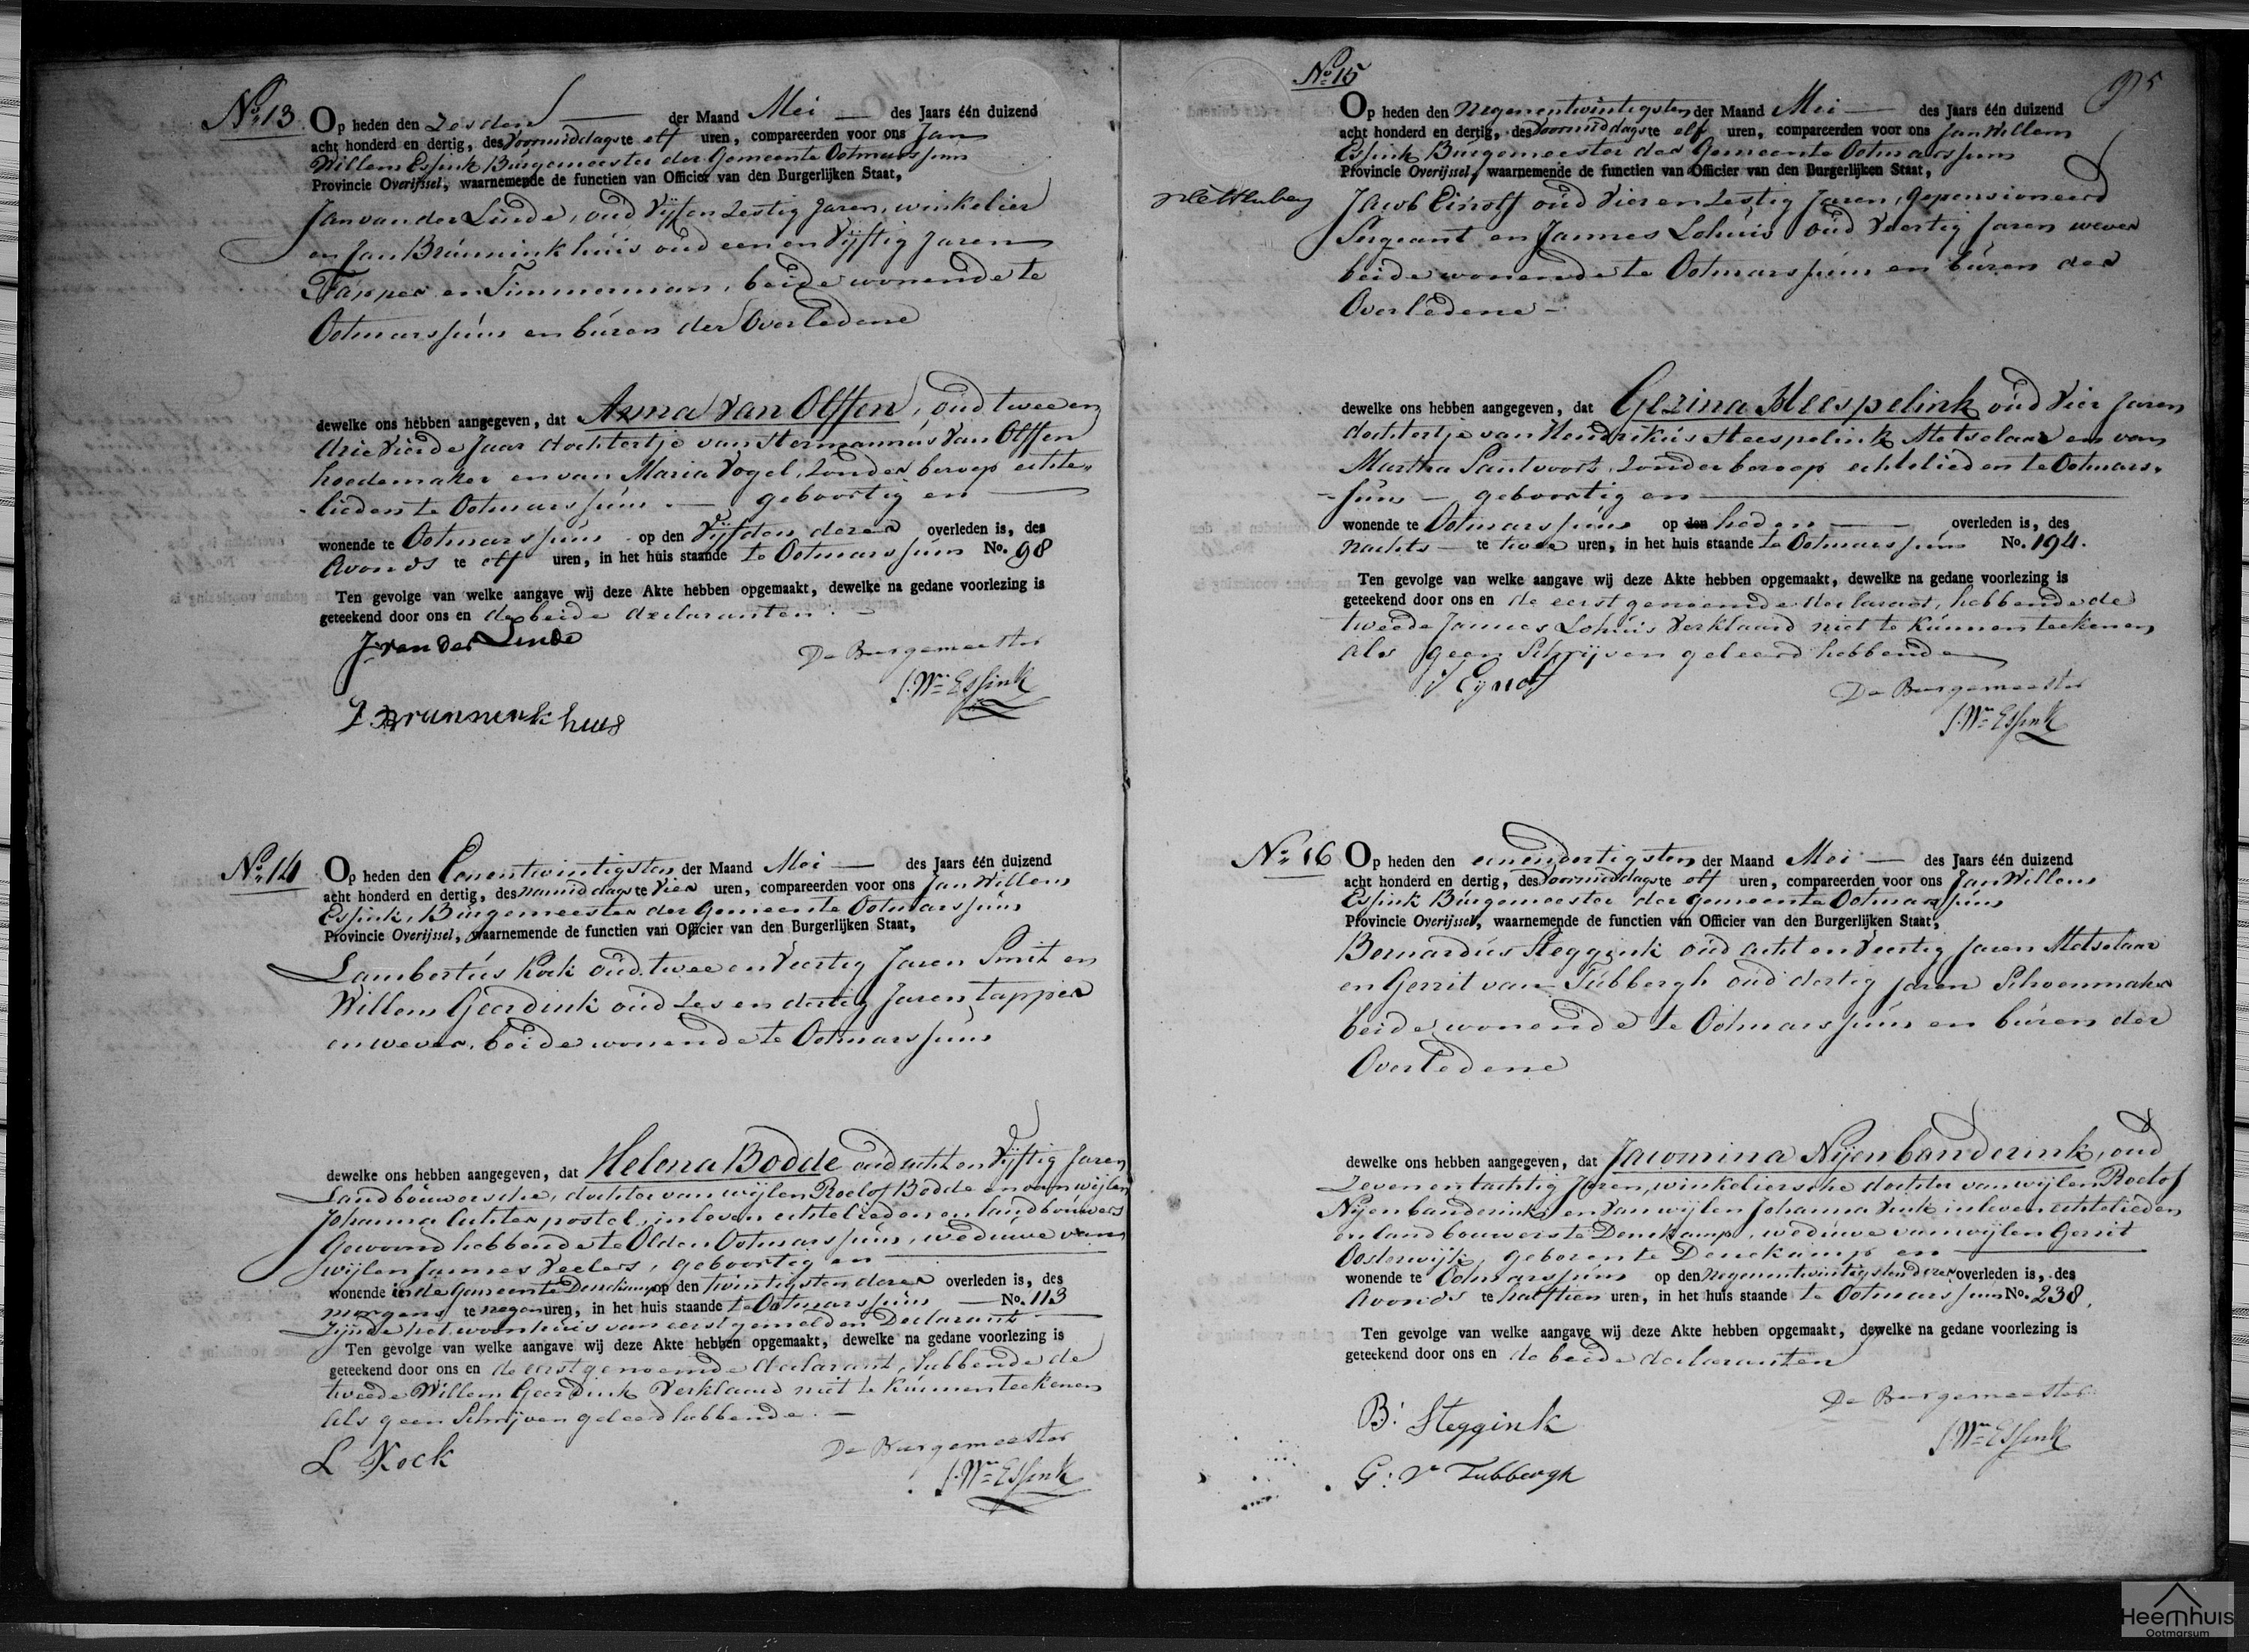 No. 13
Op heden den Zesden der Maand Mei des Jaars één duizend
acht honderd en dertig, des Voormiddags te elf uren, compareerden voor ons Jan
Willem Essink Burgemeester der Gemeente Ootmarssum
Provincie Overijssel, waarnemende de functien van Officier van den Burgerlijken Staat,
Jan van der Linde, oud Vijf en Zestig Jaren, winkelier
en Jan Brunninkhuis oud een en Vijftig Jaren
Tapper en Timmerman, beide wonende te
Ootmarssum en buren der Overledene
dewelke ons hebben aangegeven, dat Anna Van Olffen, oud twee en
drie Vierde Jaar dochtertje van Hermannus Van Olffen
hoedemaker en van Maria Vogel, zonder beroep echte-
lieden te Ootmarssum geboortig en
wonende te Ootmarssum op den Vijfden dezer overleden is, des
Avonds te elf uren, in het huis staande te Ootmarssum No. 98
Ten gevolge van welke aangave wij deze Akte hebben opgemaakt, dewelke na gedane voorlezing is
geteekend door ons en de beide declaranten.
J. van der Linde
De Burgemeester
J. Wm Essink
J Brunninkhuis
No. 14
Op heden den Eenentwintigsten der Maand Mei des Jaars één duizend
acht honderd en dertig, des namiddags te Vier uren, compareerden voor ons Jan Willem
Essink, Burgemeester der Gemeente Ootmarssum
Provincie Overijssel, waarnemende de functien van Officier van den Burgerlijken Staat,
Lambertus Kock oud twee en Veertig Jaren Smit en
Willem Geerdink oud Zes en dertig Jaren tapper
en wever, beide wonende te Ootmarssum
dewelke ons hebben aangegeven, dat Helena Bodde oud acht en Vijftig Jaren
Landbouwersche, dochter van wijlen Roelof Bodde en van wijlen
Johanna Achterpostel, in leven echtelieden en landbouwers
Gewoond hebbende te Olden Ootmarssum, weduwe van
wijlen Jannes Veelers, geboortig en
wonende in de Gemeente Denekamp op den twintigsten dezer overleden is, des
morgens te negen uren, in het huis staande te Ootmarssum No. 113
Zijnde het woonhuis van eerstgemelden Declarant
Ten gevolge van welke aangave wij deze Akte hebben opgemaakt, dewelke na gedane voorlezing is
geteekend door ons en de eerstgenoemde declarant, hebbende de
tweede Willem Geerdink Verklaard niet te kunnen teekenen
als geen Schrijven geleerd hebbende.
L Kock
De Burgemeester
J. Wm Essink
95
No. 15
Op heden den Negenentwintigsten der Maand Mei des Jaars één duizend
acht honderd en dertig, des Voormiddags te elf uren, compareerden voor ons Jan Willem
Essink Burgemeester der Gemeente Ootmarssum
Provincie Overijssel, waarnemende de functien van Officier van den Burgerlijken Staat,
Jacob Einolf oud Vier en Zestig Jaren, Gepensioneerd
Sergeant en Jannes Lohuis oud Veertig Jaren wever
beide wonende te Ootmarssum en buren der
Overledene
dewelke ons hebben aangegeven, dat Gezina Heespelink oud Vier Jaren
dochtertje van Hendrikus Heespelink Metselaar en van
Martha Santvoort, zonder beroep echtelieden te Ootmars-
sum geboortig en
wonende te Ootmarssum op den heden overleden is, des
Nachts te twee uren, in het huis staande te Ootmarssum No. 194.
Ten gevolge van welke aangave wij deze Akte hebben opgemaakt, dewelke na gedane voorlezing is
geteekend door ons en de eerst genoemde declarant, hebbende de
tweede Jannes Lohuis Verklaard niet te kunnen teekenen
als geen Schrijven geleerd hebbende
De Burgemeester
J. Wm Essink
No. 16
Op heden den eenendertigsten der Maand Mei des Jaars één duizend
acht honderd en dertig, des Voormiddags te elf uren, compareerden voor ons Jan Willem
Essink Burgemeester der Gemeente Ootmarssum
Provincie Overijssel, waarnemende de functien van Officier van den Burgerlijken Staat,
Bernardus Steggink oud acht en Veertig Jaren Metselaar
en Gerrit van Tubbergh oud dertig Jaren Schoenmaker
beide wonende te Ootmarssum en buren der
Overledene
dewelke ons hebben aangegeven, dat Jacomina Nijenbanderink, oud
Zeven en tachtig Jaren, winkeliersche dochter van wijlen Roelof
Nijenbanderink en van wijlen Johanna Vink in leven echtelieden
en landbouwers te Denekamp, weduwe van wijlen Gerrit
Oosterwijk, geboren te Denekamp en
wonende te Ootmarssum op den negenentwintigsten dezer overleden is, des
Avonds te half tien uren, in het huis staande te Ootmarssum No. 238.
Ten gevolge van welke aangave wij deze Akte hebben opgemaakt, dewelke na gedane voorlezing is
geteekend door ons en de beide declaranten
De Burgemeester
B: Steggink
J. Wm Essink
G: v Tubbergh
Heemhuis
Ootmarsum